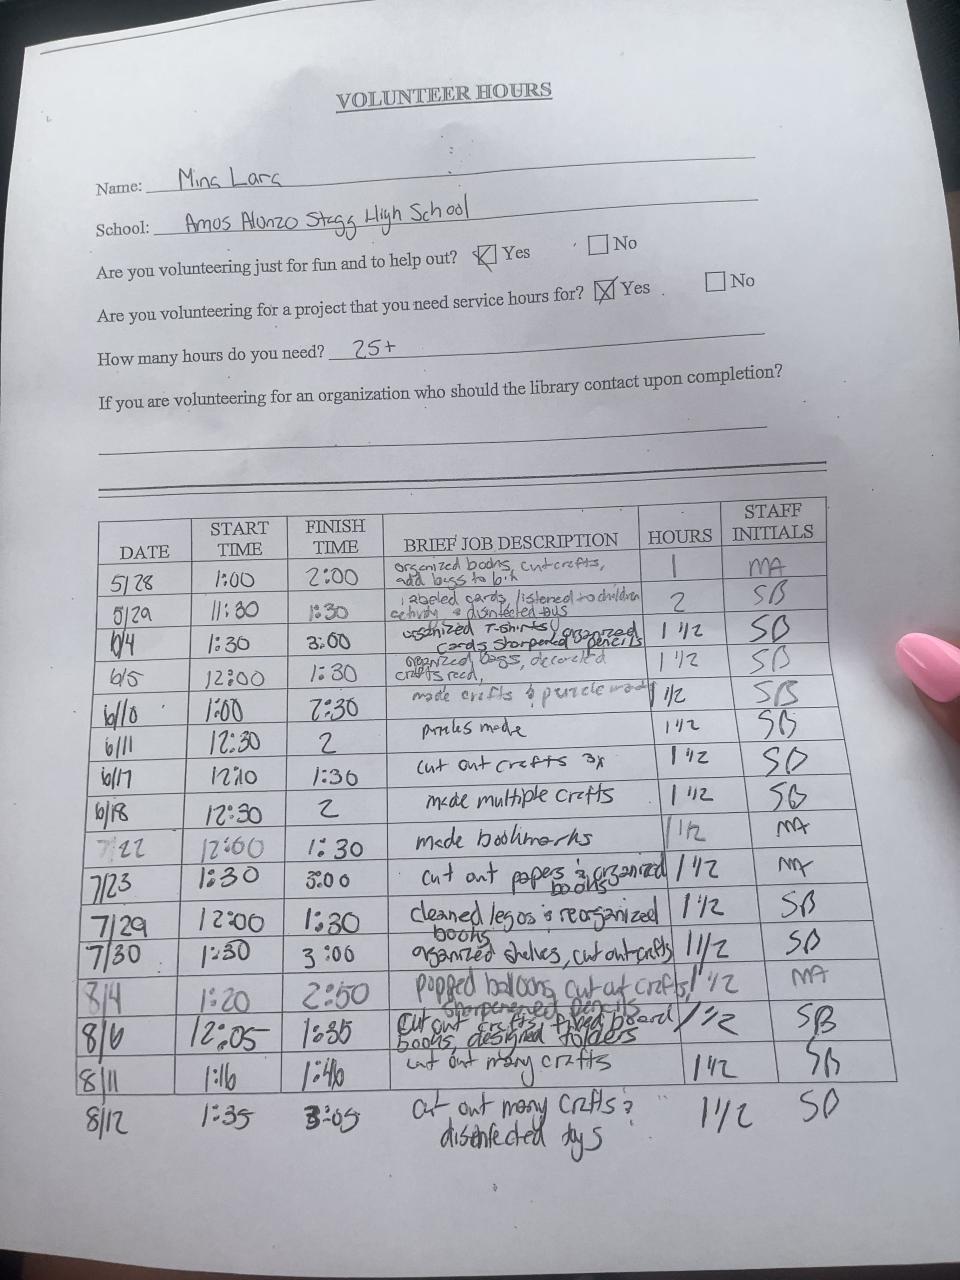 VOLUNTEER HOURS
Name: Ming Lara
School: Amos Alonzo Stagg High School
Are you volunteering just for fun and to help out? Yes No
Are you volunteering for a project that you need service hours for? Yes No
How many hours do you need? 25+
If you are volunteering for an organization who should the library contact upon completion?
DATE START TIME FINISH TIME BRIEF JOB DESCRIPTION HOURS STAFF INITIALS
5/28 1:00 2:00 organized books, cut crafts, add bags to 1 MA
5/29 11:30 1:30 labeled cards, listened to children activity & disinfected 2 SB
6/4 1:30 3:00 organized T-shirts, organized cards sharpened pencils 1 1/2 SB
6/5 12:00 1:30 organized bags, decorated crafts 1 1/2 SB
6/10 1:00 2:30 made crafts & puzzle made 1 1/2 SB
6/11 12:30 2 made 1 1/2 SB
6/17 1:30 cut out crafts 3x 1 1/2 SB
6/18 12:30 2 made multiple crafts 1 1/2 SB
7/22 12:00 1:30 made bookmarks 1 1/2 MA
7/23 1:30 3:00 cut out papers & organized books 1 1/2 MA
7/29 12:00 1:30 cleaned legos & reorganized books 1 1/2 SB
7/30 1:30 3:00 organized shelves, cut out crafts 1 1/2 SB
8/4 1:20 2:50 popped balloons, cut out crafts, sharpenened pencils 1 1/2 MA
8/6 12:05 1:35 Cut out crafts, board books, designed folders 1 1/2 SB
8/11 1:16 1:46 cut out many crafts 1 1/2 SB
8/12 1:35 3:05 Cut out many crafts & disenfected 1 1/2 SB